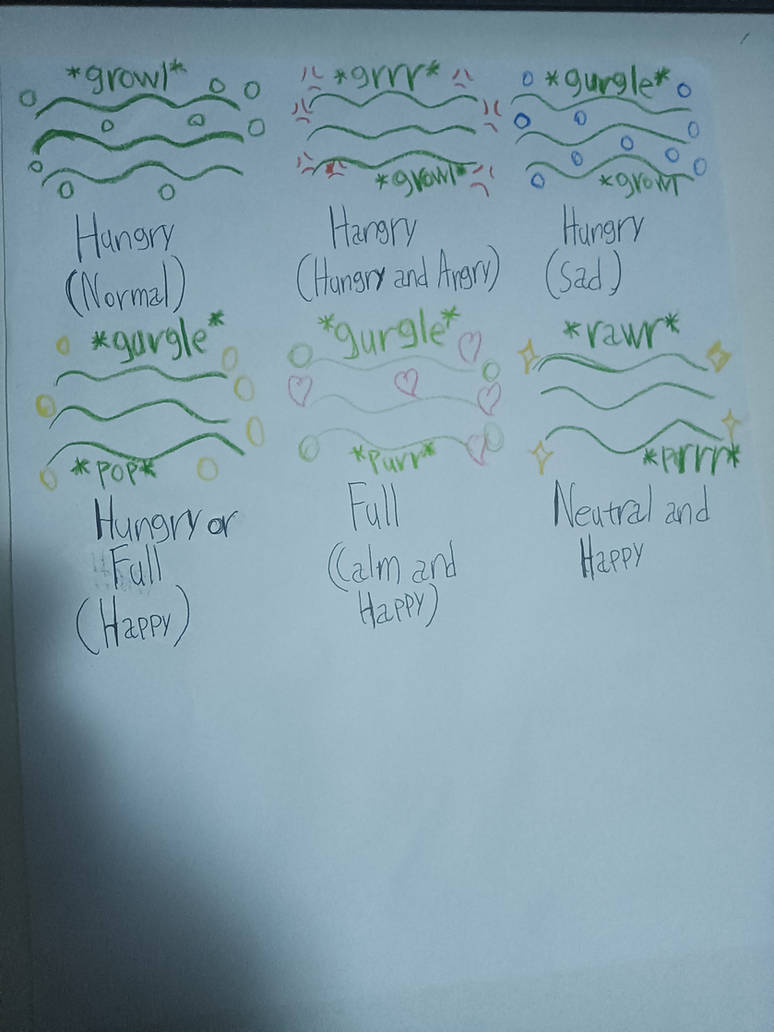 *growl*
Hungry
(Normal)
*grrr*
*growl*
Hangry
(Hungry and Angry)
*gurgle*
*growl
Hungry
(Sad)
*gurgle*
*pop*
Hungry or
Full
(Happy)
*gurgle*
*purr*
Full
(Calm and
Happy)
*rawr*
*prrr*
Neutral and
Happy